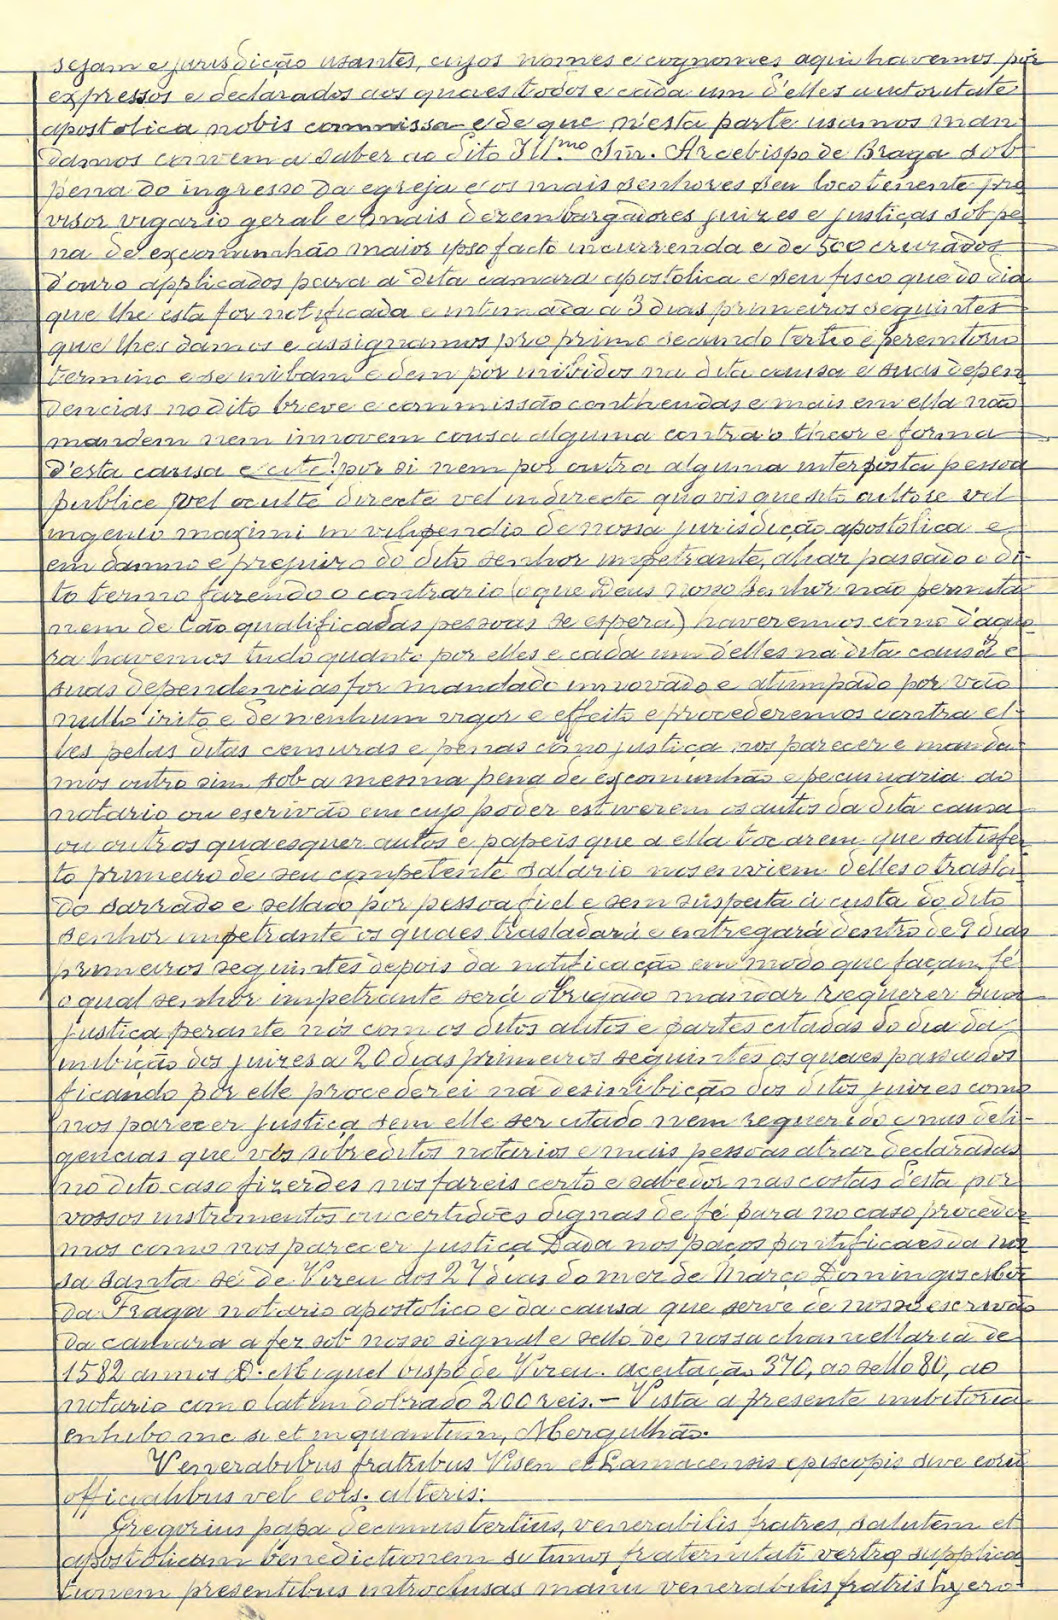 sejam e jurisdição usantes, cujos nomes e cognomes aqui havemos por
expressos e declarados aos quaes todos e cada um d'elles autoritate
apostolica nobis commissa e de que n'esta parte usamos man
damos convem a saber ao dito Ill.mo Snr. Arcebispo de Braga sob
pena do ingresso da egreja e os mais senhores seu loco tenente pro
visor vigario geral e mais dezembargadores juizes e justiças sob pe
na de excommunhão maior ipso facto incurrenda e de 500 cruzados
d'ouro applicados para a dita camara apostolica e seu fisco que do dia
que lhe esta for notificada e intimada a 3 dias primeiros seguintes
que lhes damos e assignamos pro primo secundo tertio e peremtorio
termino e se inibam e dem por inibidos na dita causa e suas depen
dencias no dito breve e commissão conthendas e mais em ella não
mandem nem innovem cousa alguma contra o theor e forma
d'esta causa e cite! por si nem por outra alguma interposta pessoa
publice vel oculte directe vel indirecte quovis quesito cultore vel
ingenio maximi in vilipendio de nossa jurisdição apostolica e
em damno e prejuizo do dito senhor impetrante, alias passado o di-
to termo fazendo o contrario (o que Deus nosso Senhor não permita
nem de tão qualificadas pessoas se espera) haveremos como d'ago
ra havemos tudo quanto por elles e cada um d'elles na dita causa e
suas dependencias for mandado innovado e atemptado por vão
nullo irito e de nenhum vigor e effeito e procederemos contra el-
les pelas ditas censuras e penas como justiça nos parecer e manda-
mos outro sim sob a mesma pena de excomunhão e pecuniaria ao
notario ou escrivão em cujo poder estiverem os autos da dita causa
ou outros quaesquer autos e papeis que a ella tocarem que satisfei
to primeiro de seu competente salario nos enviem d'elles o trasla-
do sarrado e sellado por pessoa fiel e sem suspeita á custa do dito
senhor impetrante os quaes trasladará e entregará dentro de 9 dias
primeiros seguintes depois da notificação em modo que façam fé
o qual senhor impetrante será obrigado mandar requerer sua
justiça perante nós com os ditos autos e partes citadas do dia da
inibição dos juizes a 20 dias primeiros seguintes os quaes passados
ficando por elle procederei na desinibição dos ditos juizes como
nos parecer justiça sem elle ser citado nem requerido e nas deli-
gencias que vós sobreditos notarios e mais pessoas atraz declaradas
no dito caso fizerdes nos fareis certo e sabedor nas costas d'esta por
vossos instromentos ou certidões dignas de fé para no caso proceder
mos como nos parecer justiça Dada nos paços pontificaes da nos
sa santa sé de Vizeu aos 27 dias do mez de Março Domingos
da Fraga notario apostolico e da causa que serve de nosso escrivão
da camara a fez sob nosso signal e sello de nossa chancellaria de
1582 annos D. Miguel bispo de Vizeu. aceitação 370, ao sello 80, ao
notario com o latim dobrado 200 reis. – Vista a presente inibitoria
enhibo me si et in quantum, Mergulhão.
Venerabibus fratribus Visen et Lamacensis episcopis sive eorū
officialibus vel eois. alteris:
Gregorius papa decimustertius, venerabilis fratres, salutem et
apostolicam benedictionem su timos fraternitati vertrę supplica
tionem presentibus introclusas manu venerabilis fratris hyero-